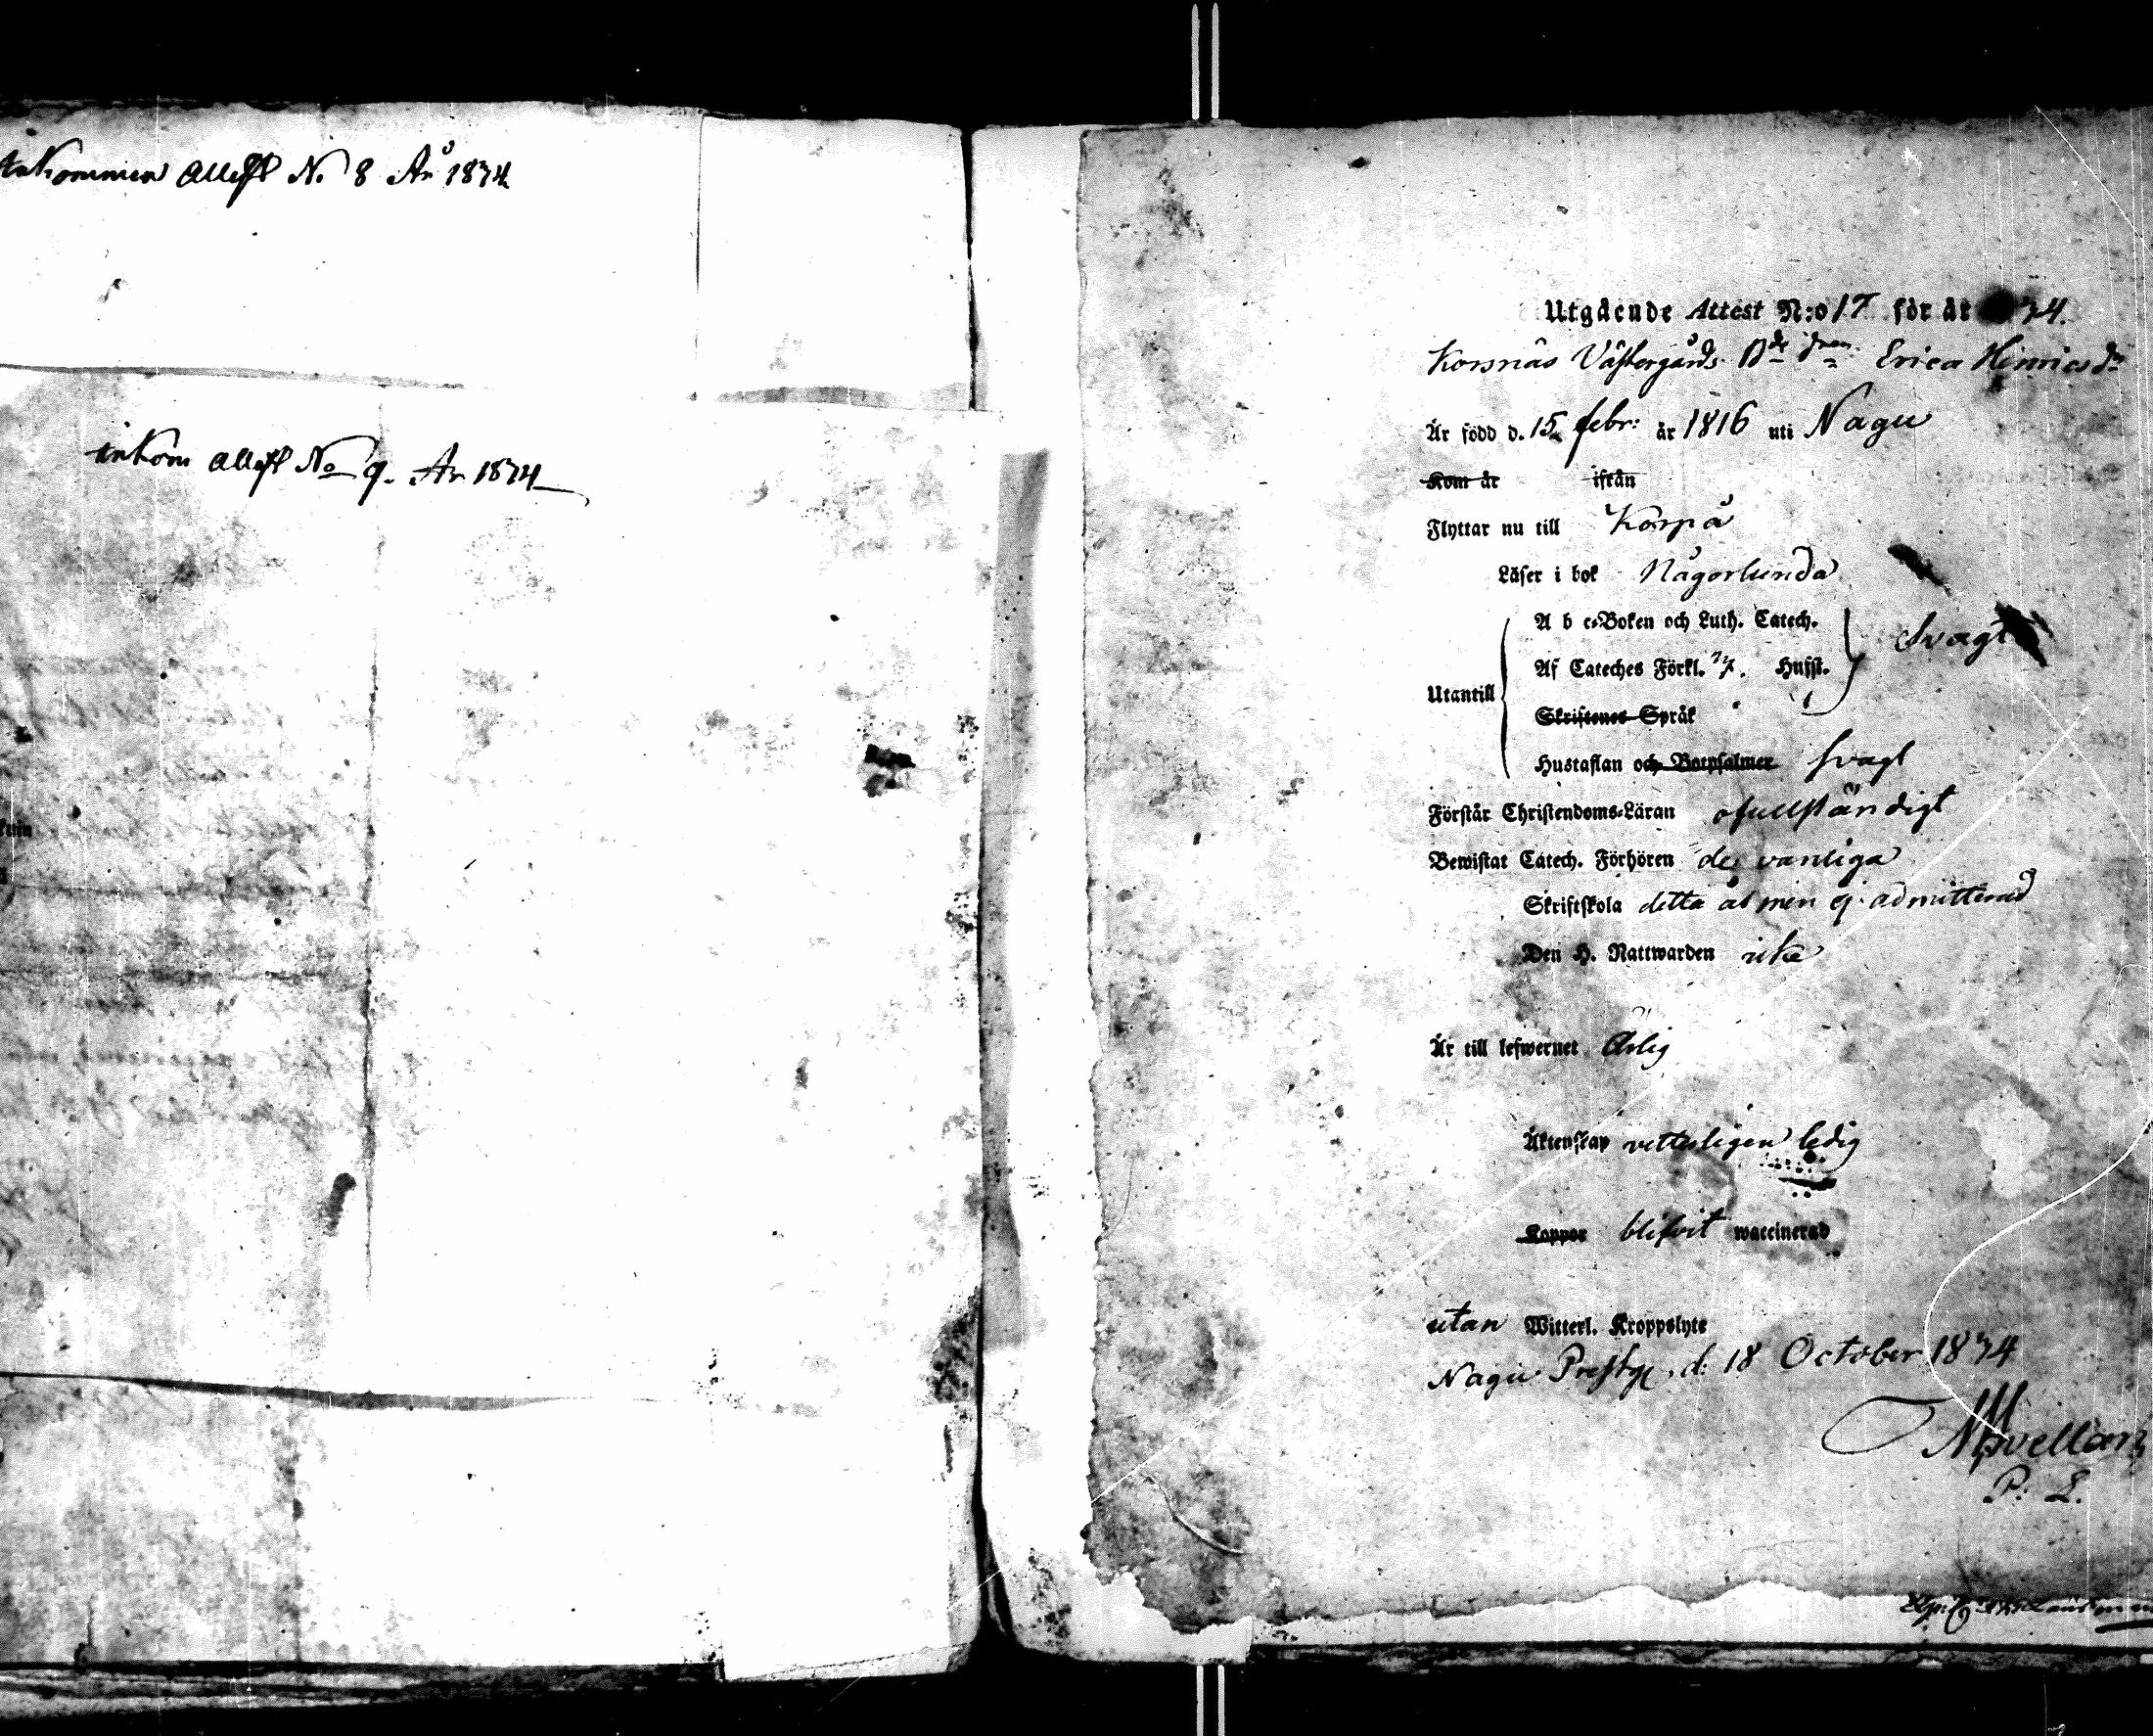 Inkommen Attest N. 8 År 1834
inkom Attest No 9. År 1834
Utgående Attest N:o 17 för år 34.
Korsnäs Västergårds Erica Hinricsdr
Är född d. 15 febr: år 1816 uti Nagu
Kom år ifrån
Flyttar nu till Korpå
Läser i bok Någorlunda
A b c-Boken och Luth. Catech.
Svagt
Af Cateches Förkl. Hufst.
Utantill
Skriftenes Språk
Hustaflan och Botpsalmer svagt
Förstår Christendoms-Läran ofullständigt
Bewistat Catech. Förhören de vanliga
Skriftskola detta år men ej admitterad
Den H. Nattwarden icke
Är till lefwernet Ärlig
Äktenskap vitterligen ledig
Koppor blifvit waccinerad
utan Witterl. Kroppslyte
Nagu Prestg. d: 18 October 1834
P: L.